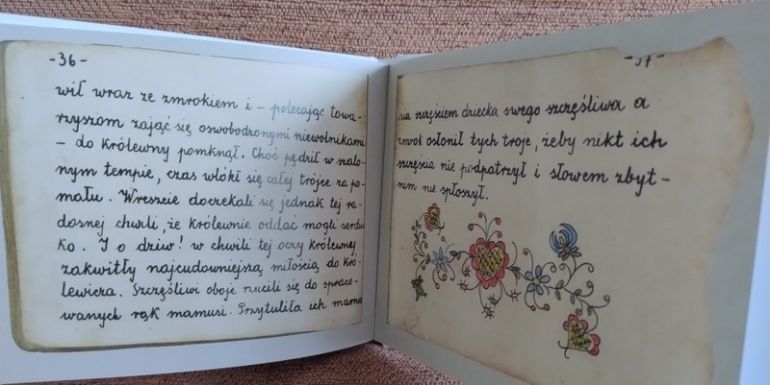 -36-
wił wraz ze zmrokiem i - polecając towa-
rzyszom zająć się oswobodzonymi niewolnikami
- do królewny pomknął. Choć pędził w szalo-
nym tempie, czas wlókł się całej trójce za po-
mału. Wreszcie doczekali się jednak tej ra-
dosnej chwili, że królewnie oddać mogli serdu-
ko. I o dziw! w chwili tej oczy królewnej
zakwitły najcudowniejszą miłością do kró-
lewicza. Szczęśliwi oboje rzucili się do spraco-
wanych rąk mamusi. Przytuliła ich mamu
-37-
sia szczęściem dziecka swego szczęśliwa a
zmrok osłonił tych troje, żeby nikt ich
szczęścia nie podpatrzył i słowem zbyt-
nim nie spłoszył.